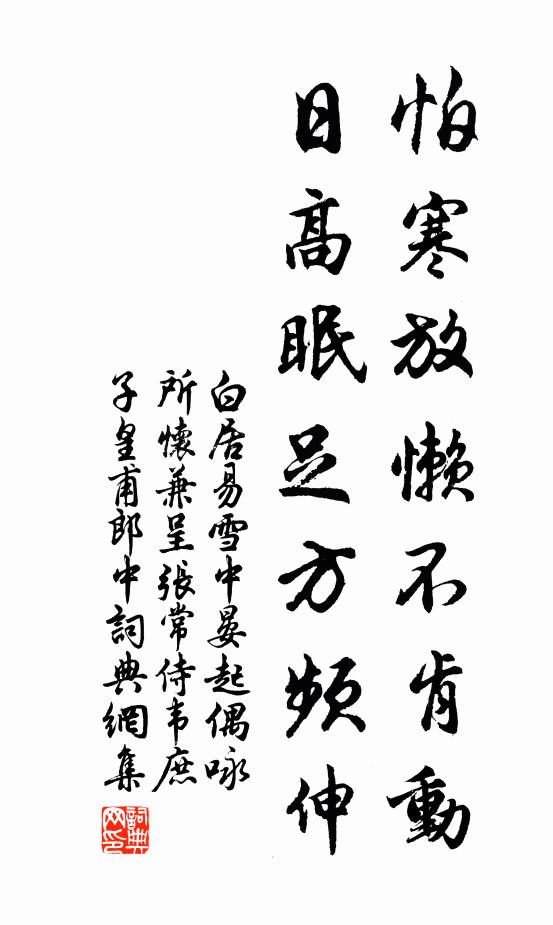 怕寒放懶不肯動
日高眠足方頻伸
白居易雪中晏起偶咏
所懷兼呈張常侍韦庶
子皇甫郎中詞典網集
詞典
网印